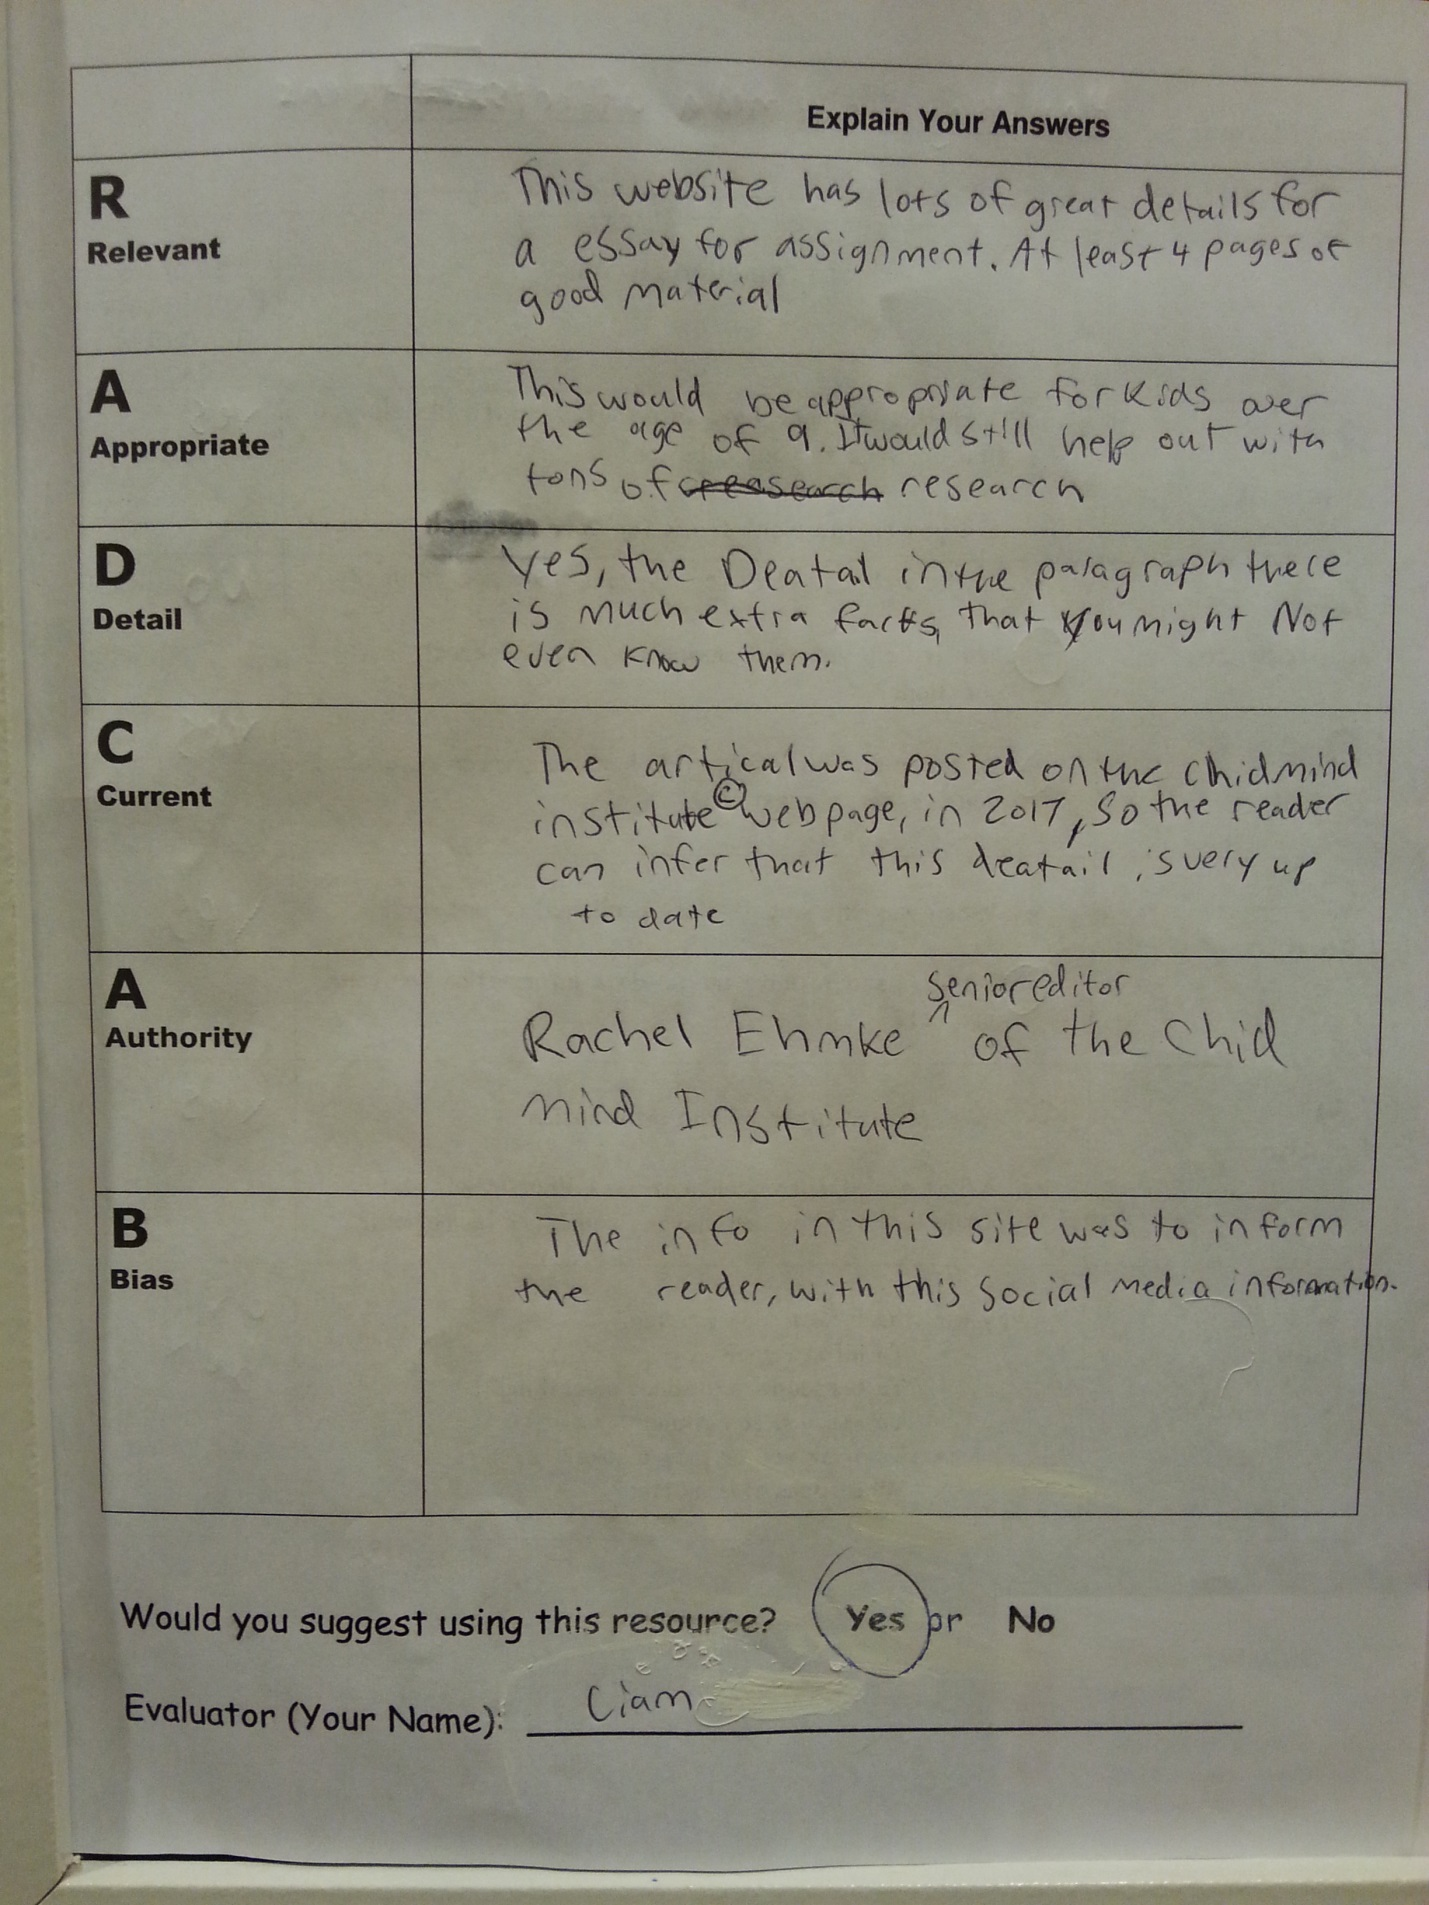 Explain Your Answers
R
Relevant
This website has lots of great details for
a essay for assignment. At least 4 pages of
good material
A
Appropriate
This would be appropriate for kids over
the age of 9. It would still help out with
tons of research
D
Detail
Yes, the Deatail in the paragraph there
is much extra facts, that you might Not
even know them.
C
Current
The artical was posted on the chidmind
institute © webpage, in 2017, so the reader
can infer that this deatail is very up
to date
A
Authority
senior editor
Rachel Ehmke ^ of the Chid
Mind Institute
B
Bias
The info in this site was to inform
the reader, with this social media information.
Would you suggest using this resource? Yes or No
Evaluator (Your Name): Liam